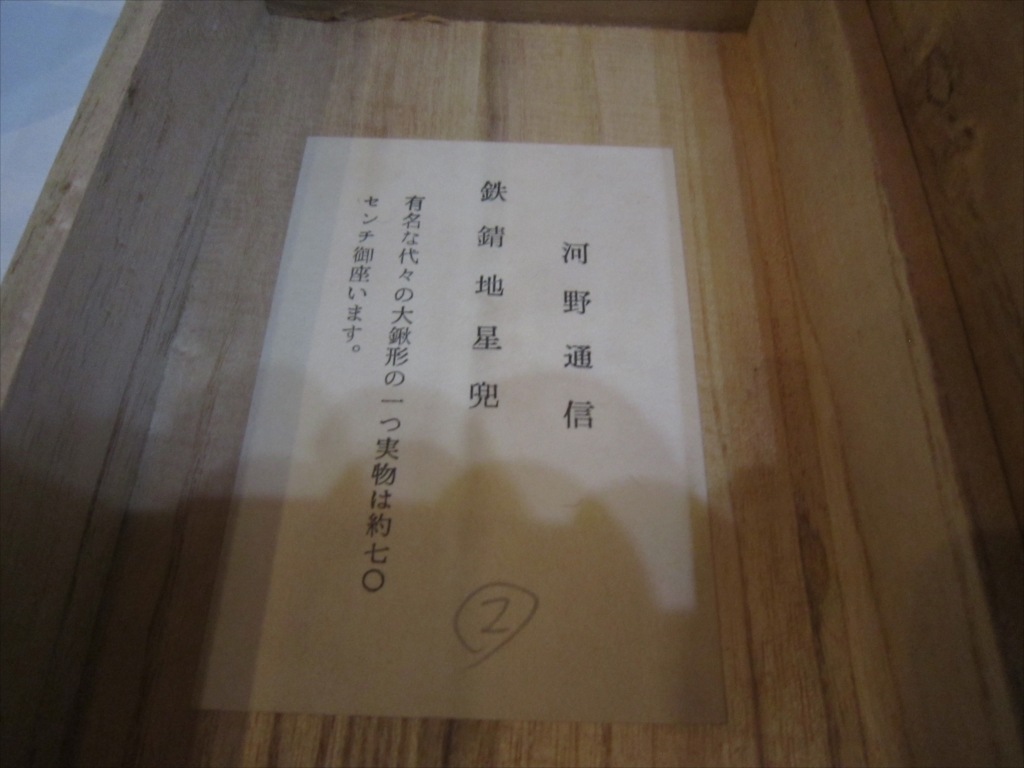 河野通信
鉄錆地星兜
有名な代々の大鍬形の一つ実物は約七〇
センチ御座います。
2